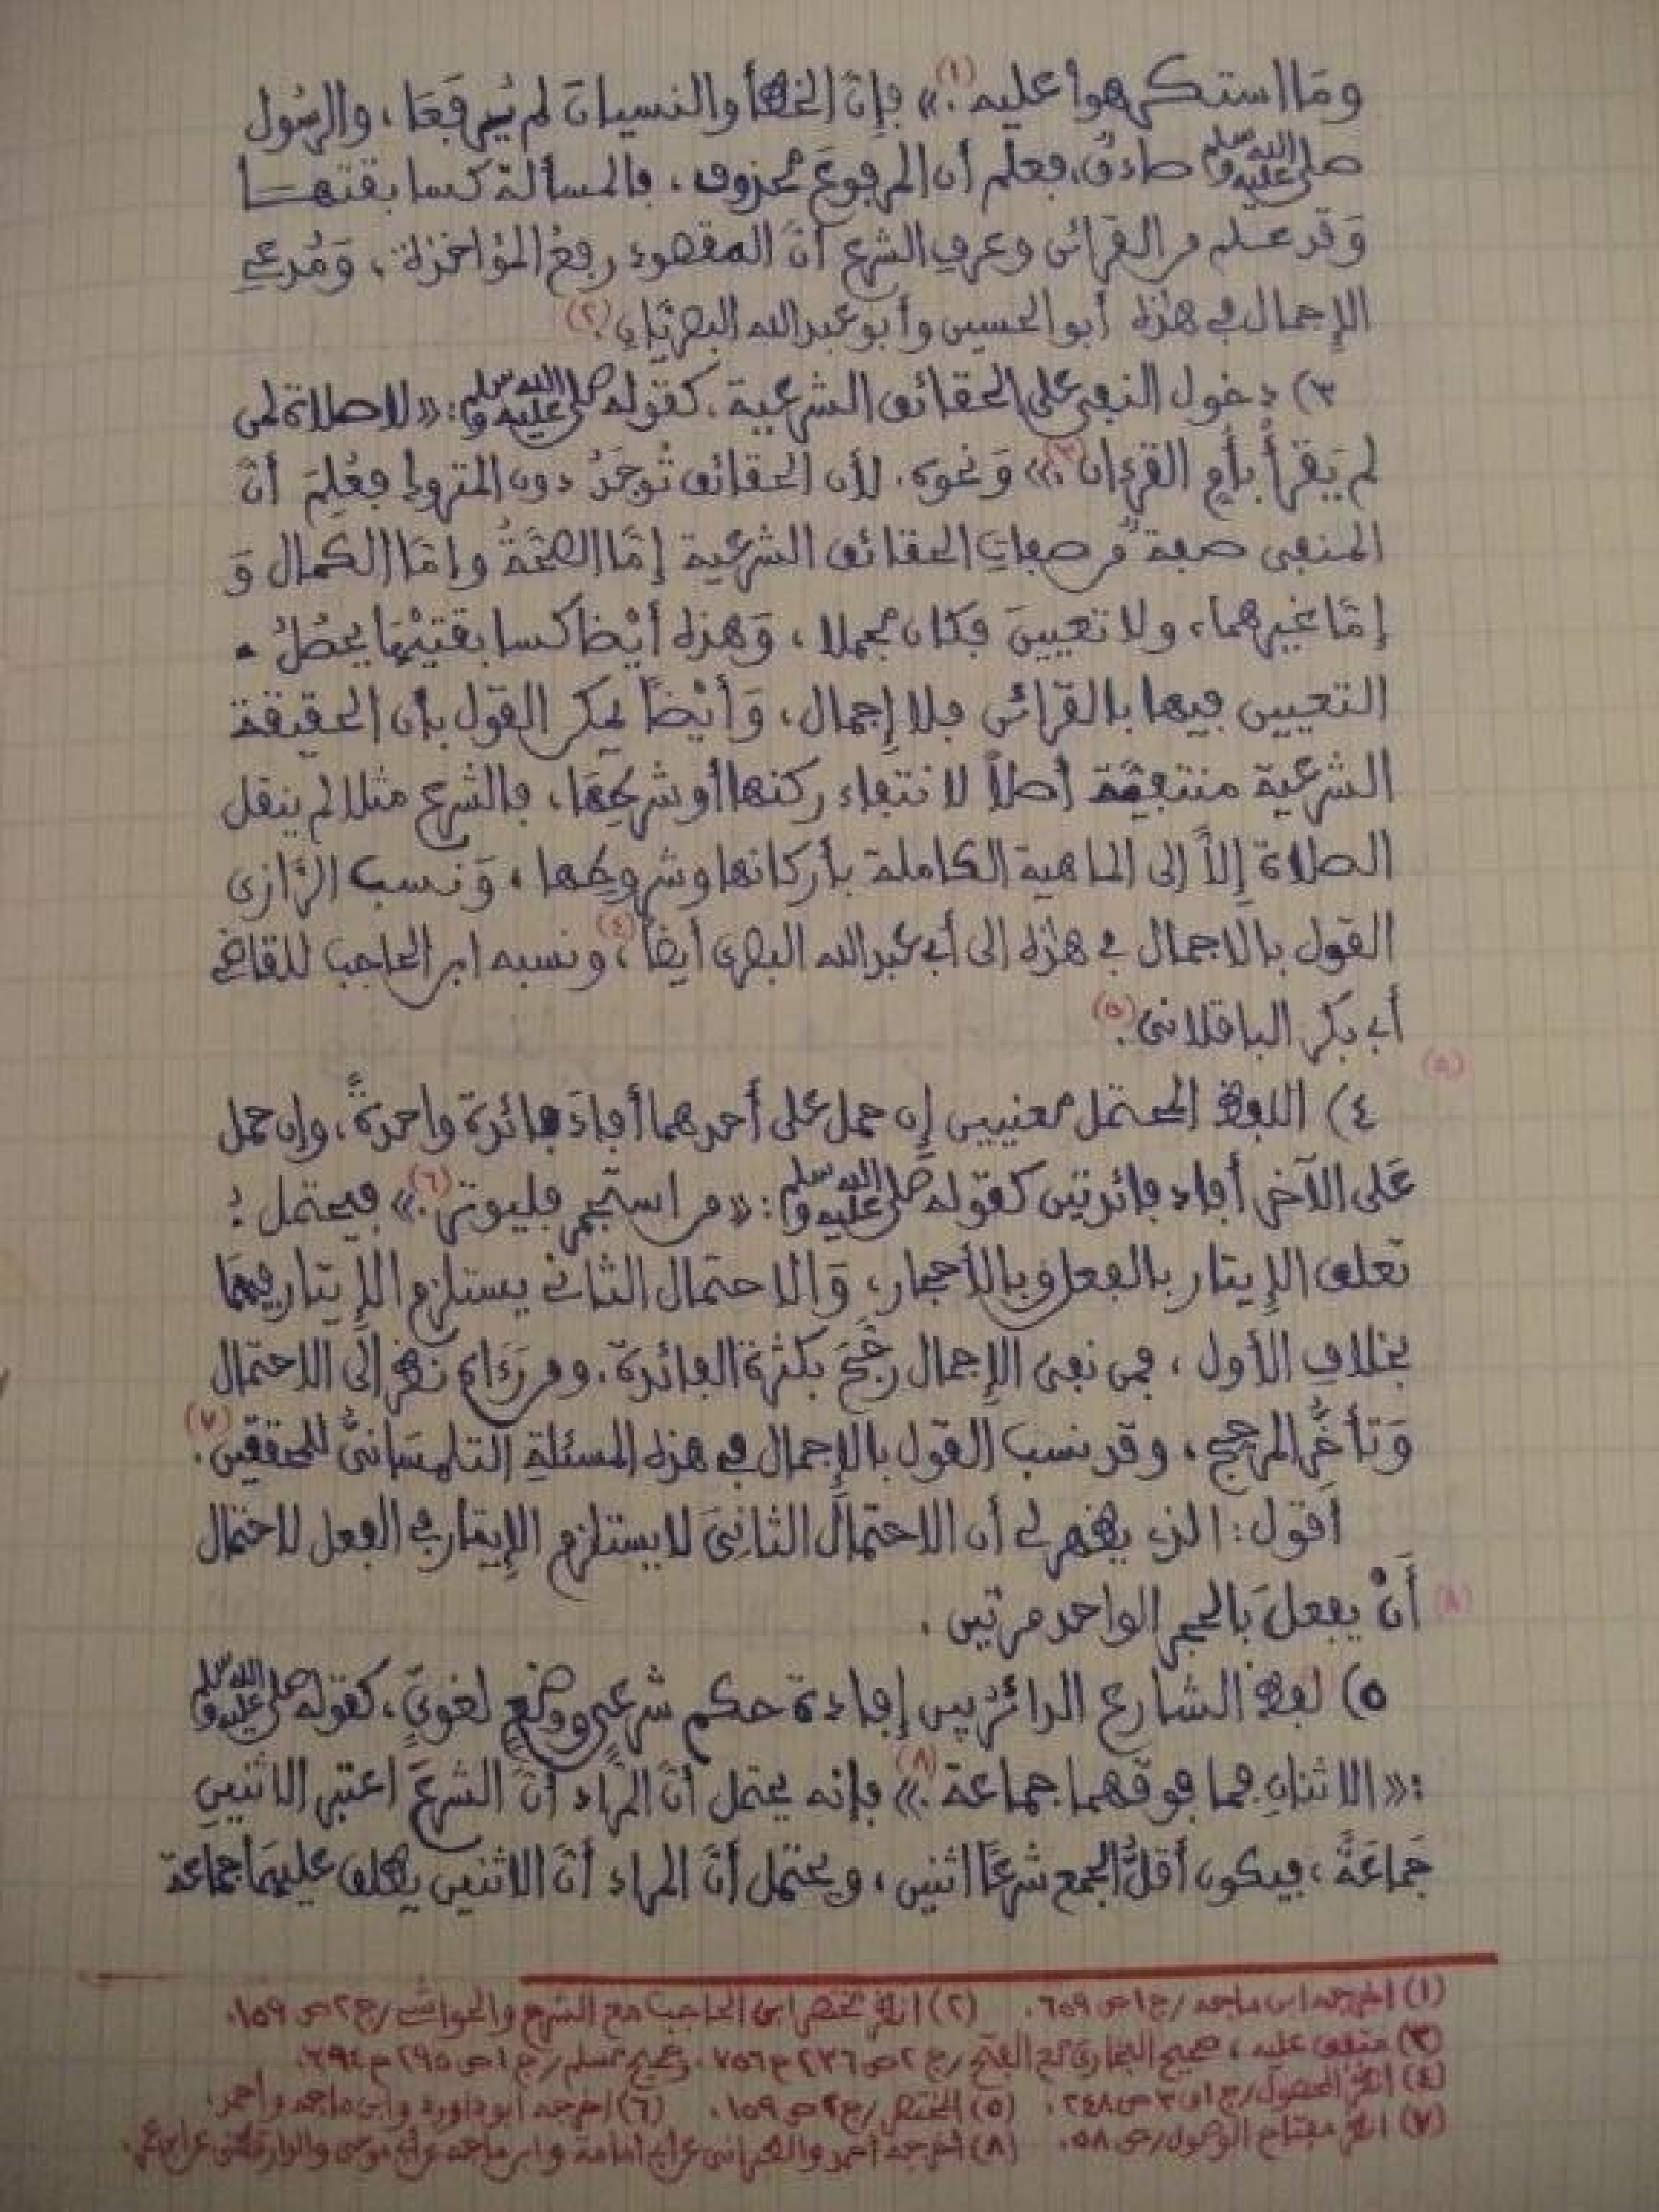 وما استكرهوا عليه (١).» فإنّ الخطأ والنسيان لم يُرفعَا، والرسُول
صلى الله عليه وسلم صادقٌ، فعلم أن المرفوعَ محذوف، فالمسألة كسابقتها
وَقد عـلم من القرائن وعرفِ الشرع أنّ المقصود رفعُ المُؤاخذة، وَمُدعي
الإجمال في هذه أبو الحسين وأبو عبد الله البصريَّانِ (٢).
٣) دخول النفي على الحقائق الشرعية، كقوله صلى الله عليه وسلم: «لا صلاة لمن
لم يَقرأْ بأمِ القرءان (٣).» وَنحوه، لأن الحقائق تُوجَدُ دون المشروط فعُلِمَ أنّ
المنفي صفةٌ من صفات الحقائق الشرعية إمّا الصّحّةُ وإمّا الكمال وَ
إمّا غيرهما، ولا تعيينَ فكان مجملا، وَهذه أيْضا كسابقتيْهَا يحصُلُ
التعيين فيها بالقرائن فلا إجمال، وَأيْضاً يمكن القول بأن الحقيقة
الشرعية منتفيَة أصلاً لانتفاء ركنها أو شرطِهَا، فالشرع مثلا لم ينقل
الصلاة إلاّ إلى الماهية الكاملة بأركانها وشروطها، وَنسب الرَّازي
القول بالاجمال في هذه إلى أبي عبد الله البصري أيضاً (٤)، ونسبه ابن الحاجب للقاضي
أبي بكر الباقلاني (٥).
(٥)
٤) اللفظ المحتمل معنيين إن حمل على أحدهما أفادَ فائدة واحدةً، وإن حمل
عَلى الآخر أفاد فائدتين كقوله صلى الله عليه وسلم: «من استجمر فليوتر (٦).» فيحتمل:
تعلق الإيتار بالفعل وبالأحجار، وَالاحتمال الثاني يستلزم الإيتار فيهمَا
بخلافِ الأول، فمن نفى الإجمال رَجَّحَ بكثرة الفائدة، ومن رَءاه نظر إلى الاحتمال
وَتأخُّر المرجح، وقد نسب القول بالإجمال في هذه المسئلةِ التلمسَانيُّ للمحققين (٧).
أقول: الذي يظهر لي أن الاحتمالَ الثانيَ لا يستلزم الإيتار في الفعل لاحتمال
أَنْ يفعلَ بالحجر الواحد مرتين. (٨)
٥) لفظ الشارع الدائرُ بين إفادة حكم شرعي ووضعٍ لغويٍّ، كقوله صلى الله عليه وسلم
:«الاثنانِ فما فوقهما جماعة (٨).» فإنه يحتمل أنّ المراد أنّ الشرعَ اعتبر الاثنينِ
جَماعَةً، فيكون أقلُّ الجمع شرعًا اثنين، ويحتمل أنّ المراد أنّ الاثنين يطلق عليهمَا جماعة
(١) أخرجه ابن ماجه /ج١ ص ٦٥٩. (٢) انظر مختصر ابن الحاجب مع الشرح والحواشي /ج٢ ص ١٥٩.
(٣) متفق عليه، صحيح البخاري مع الفتح /ج ٢ ص ٢٣٦ ح ٧٥٦، وصحيح مسلم /ج ١ ص ٢٩٥ ح ٣٩٤.
(٤) انظر المحصول /ج ١ ق ٣ ص ٢٤٨. (٥) المختصر /ج ٢ ص ١٥٩. (٦) أخرجه أبو داوود وابن ماجه وأحمد.
(٧) انظر مفتاح الوصول /ص ٥٨. (٨) أخرجه أحمد والطبراني عن أبي أمامة وابن ماجه عن أبي موسى والدارقطني عن ابن عمر.